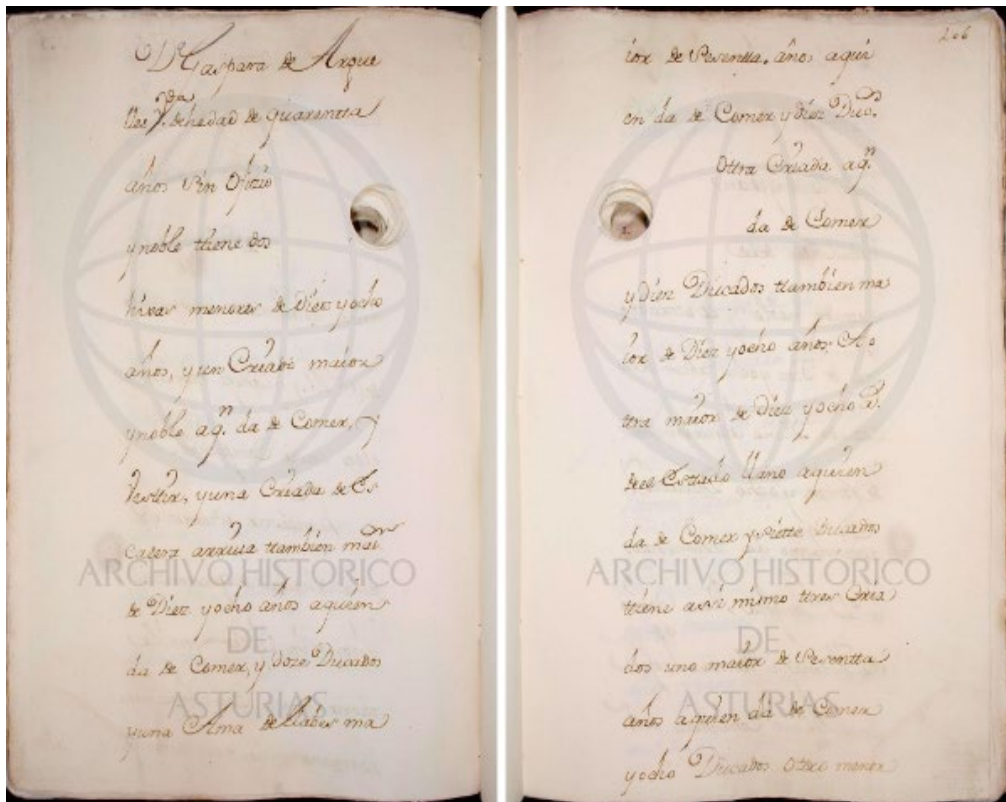 D.ª Gaspara de Argue
lles V.da de hedad de quarentta
años sin ofizio
y noble ttiene dos
hixas menores de Diez y ocho
años, y un Criado maior
y noble a q.n da de Comer, y
vesttir, y una Criada de Es
calera arriva ttambien maior
de Diez y ocho años a quien
da de Comer, y doze Ducados
y una Ama de llabes ma
206
ior de Sesentta. años a qui
en da de Comer y Diez Duc.os
Ottra Criada a q.n
da de Comer
y Diez Ducados ttambien ma
ior de Diez y ocho años. A o
ttra maior de Diez y ocho a.s
del Esttado llano a quien
da de Comer y Siette Ducados
ttiene assi mismo tres Cria
dos uno maior de Sesentta
años a quien da de Comer
y ocho Ducados ottro menor
ARCHIVO HISTORICO
DE
ASTURIAS
ARCHIVO HISTORICO
DE
ASTURIAS